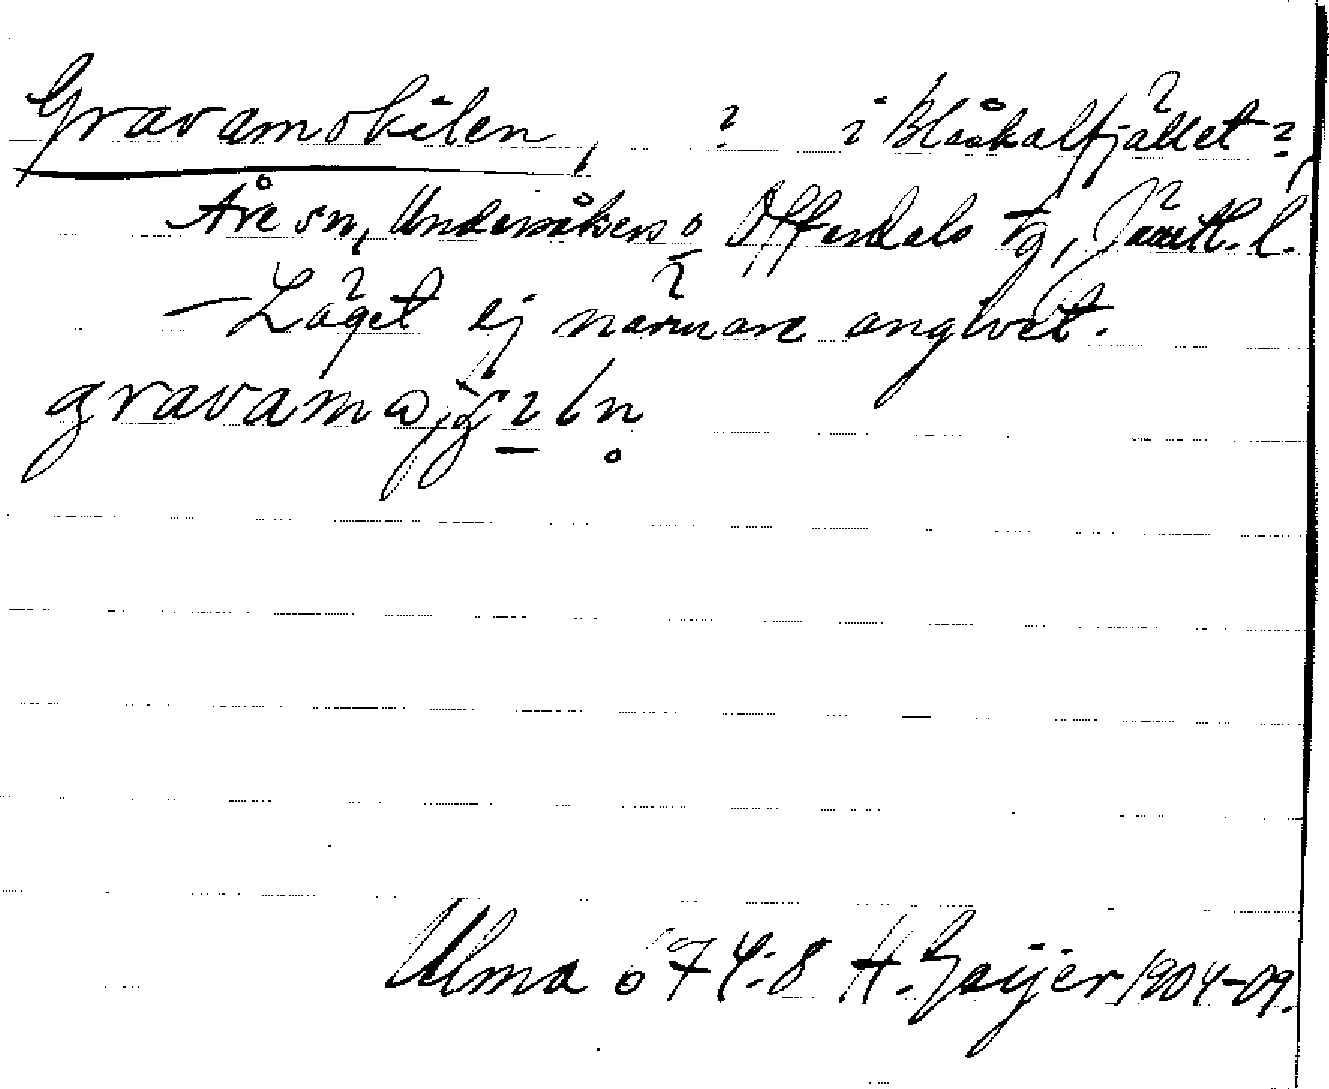 Gravamokilen, ? i Blåskalfjället?,
Åre sn, Undersåkers o Offerdals tg, Jämtl. l.
– Läget ej närmare angivet.
gravam
Ulma 674:8 H. Geijer 1904-09.